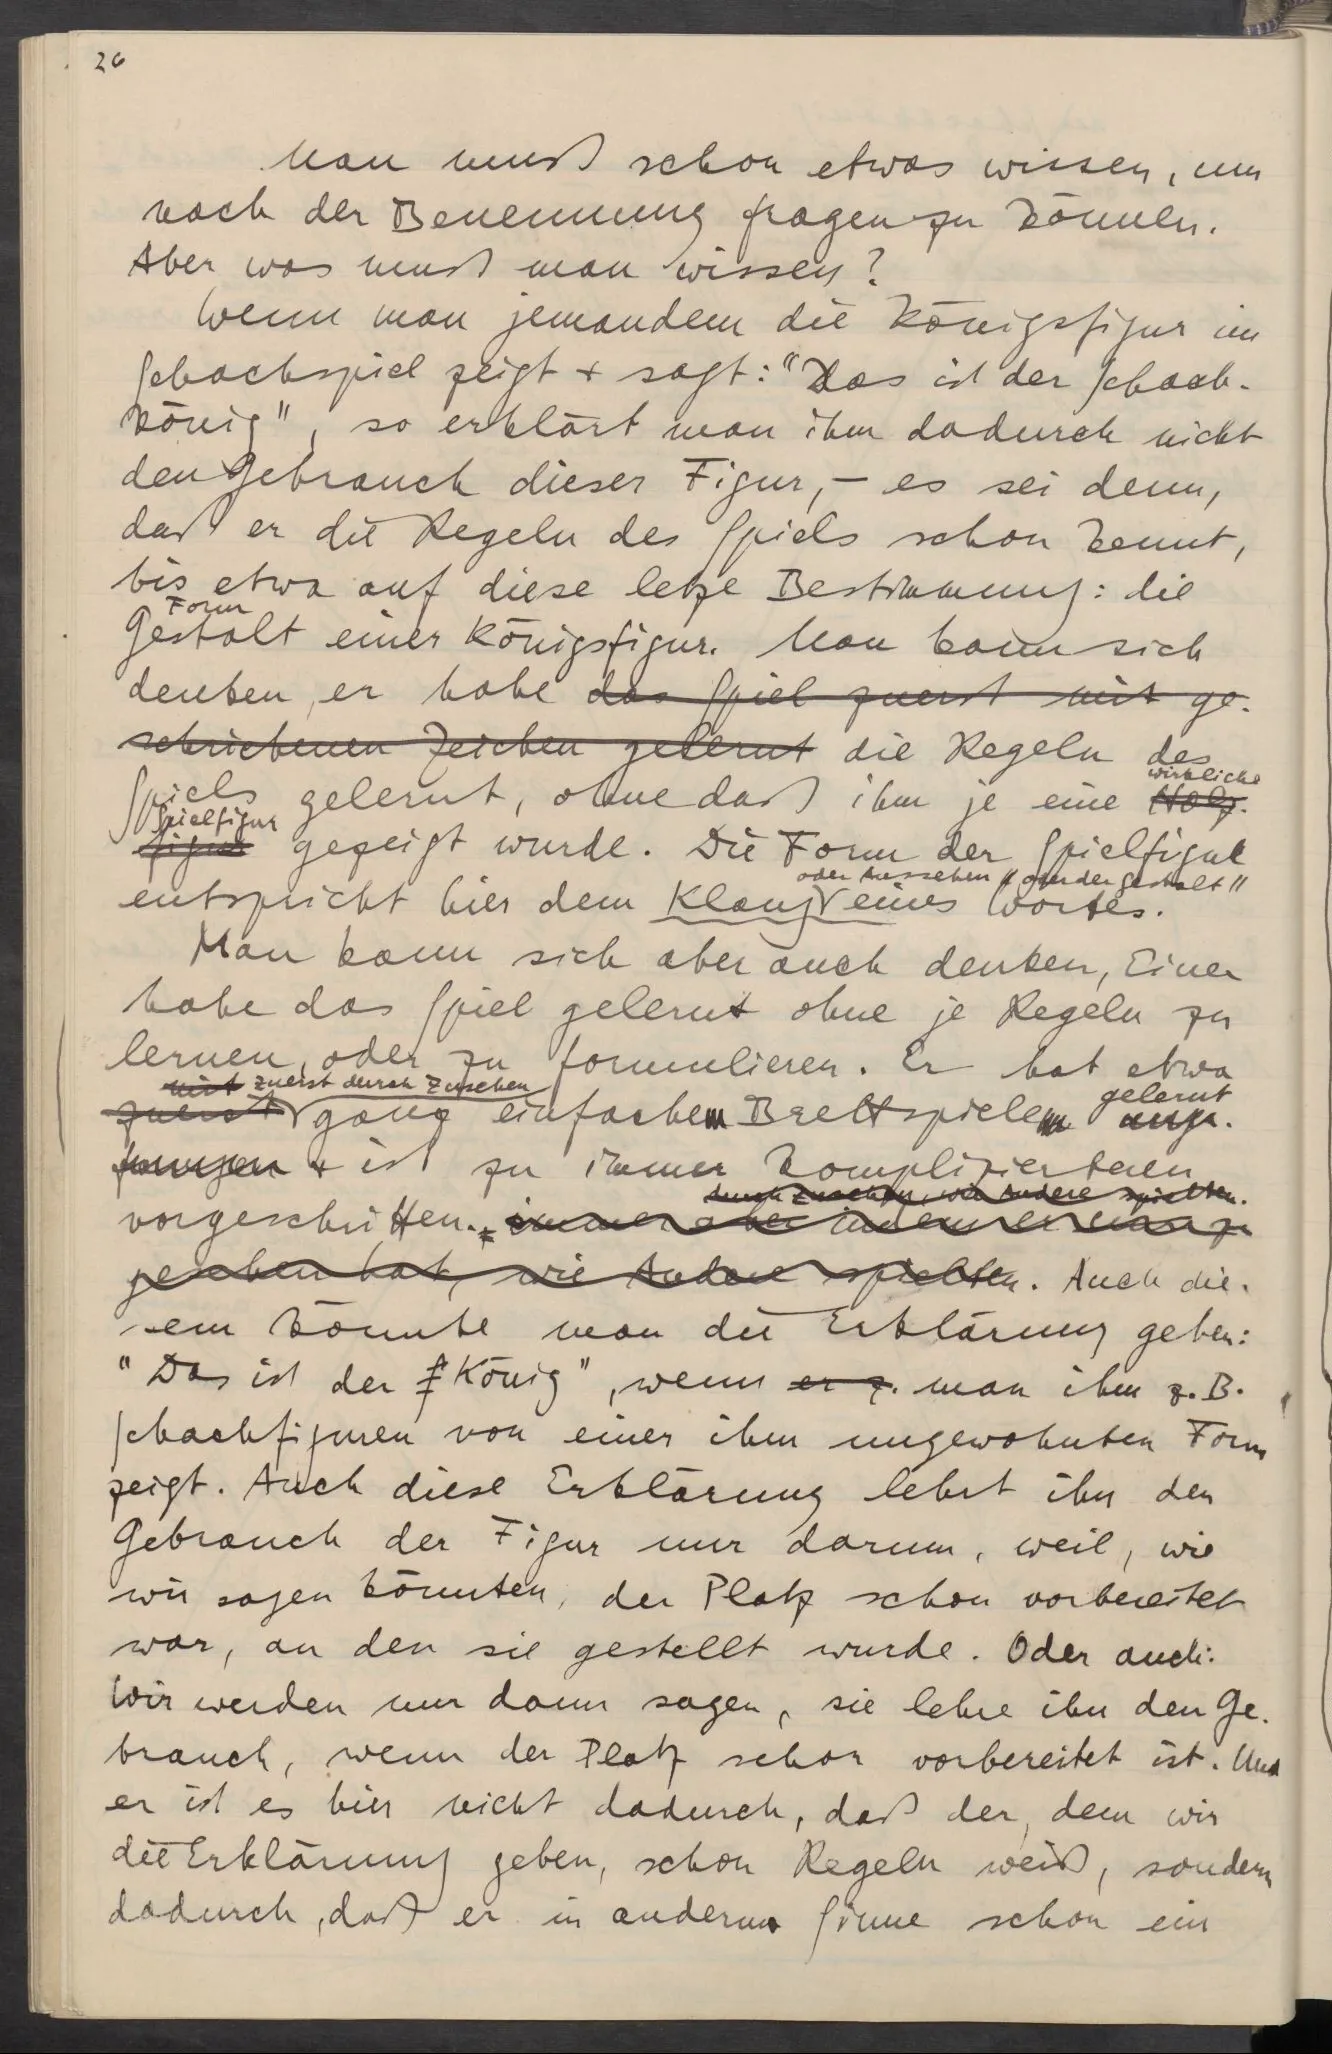 26
Man muß schon etwas wissen, um
nach der Benennung fragen zu können.
Aber was muß man wissen?
Wenn man jemandem die Königsfigur im
Schachspiel zeigt + sagt: "Das ist der Schach-
könig", so erklärt man ihm dadurch nicht
den Gebrauch dieser Figur, – es sei denn,
daß er die Regeln des Spiels schon kennt,
bis etwa auf diese letzte Bestimmung: die
Form
Gestalt einer Königsfigur. Man kann sich
denken, er habe das Spiel zuerst mit ge-
schriebenen Zeichen gelernt die Regeln des
wirkliche
Spiels gelernt, ohne daß ihm je eine Holz-
Spielfigur
figur gezeigt wurde. Die Form der Spielfigur
oder Aussehen "oder der Gestalt"
entspricht hier dem Klang eines Wortes.
Man kann sich aber auch denken, Einer
habe das Spiel gelernt ohne je Regeln zu
lernen, oder zu formulieren. Er hat etwa
mit zuerst durch Zusehen gelernt
zuerst ganz einfachem Brettspielem ange-
fangen + ist zu immer komplizierteren
durch Zusehen, wie Andere spielten.
vorgeschritten. immer aber indem er
gesehen hat, wie Andere spielten. Auch die-
sem könnte man die Erklärung geben:
"Das ist der König", wenn er z. man ihm z.B.
Schachfiguren von einer ihm ungewohnten Form
zeigt. Auch diese Erklärung lehrt ihn den
Gebrauch der Figur nur darum, weil, wie
wir sagen könnten, der Platz schon vorbereitet
war, an den sie gestellt wurde. Oder auch:
Wir werden nur dann sagen, sie lehre ihn den Ge-
brauch, wenn der Platz schon vorbereitet ist. Und
er ist es hier nicht dadurch, daß der, dem wir
die Erklärung geben, schon Regeln weiß, sondern
dadurch, daß er in anderm Sinne schon ein